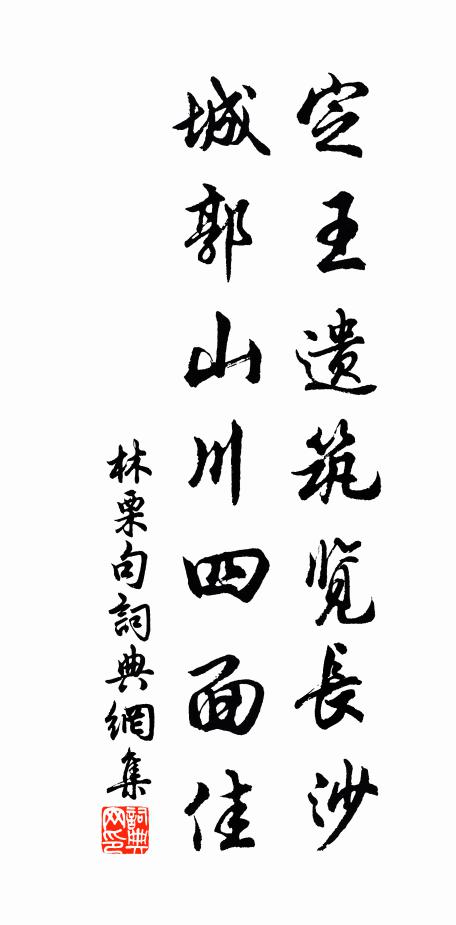 定王遗筑览長沙
城郭山川四面佳
林栗句詞典網集
詞典
网印